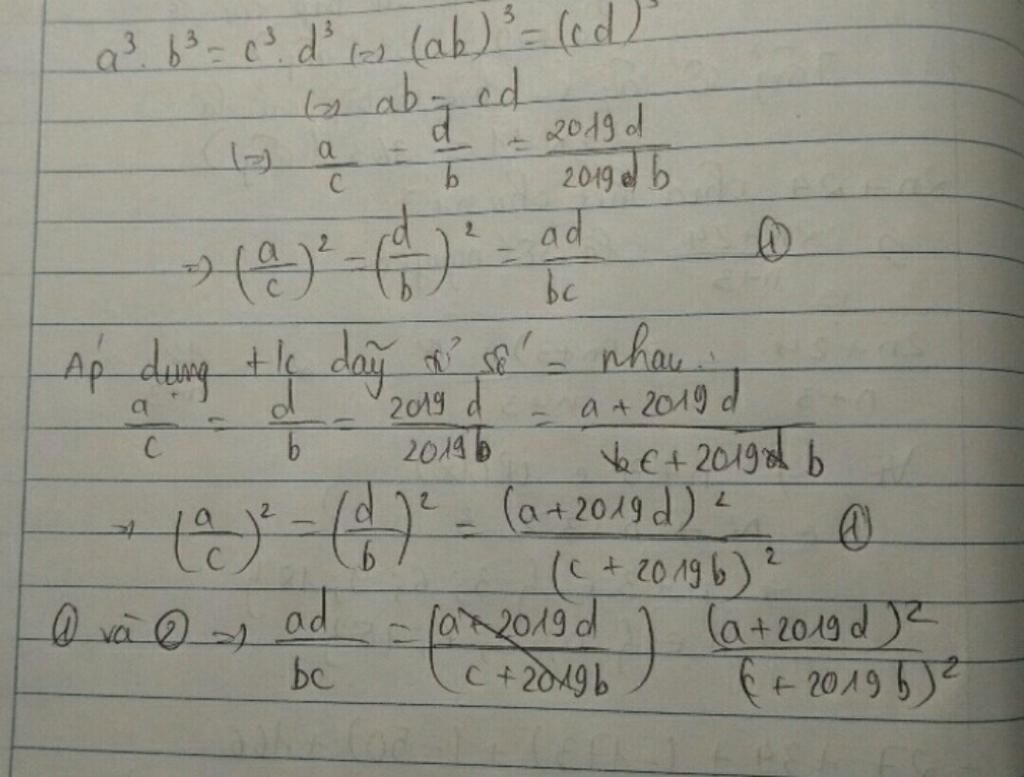 a³. b³ = c³. d³ (=) (ab)³ = (cd)³
(=) ab = cd
(=) a/c = d/b = 2019d/2019b
=) (a/c)² = (d/b)² = ad/bc ①
Áp dụng t/c dãy tỉ số = nhau:
a/c = d/b = 2019d/2019b = (a + 2019d)/(c + 2019b)
=) (a/c)² = (d/b)² = (a+2019d)²/(c + 2019b)² ①
① và ② =) ad/bc = (a+2019d)²/(c + 2019b)²